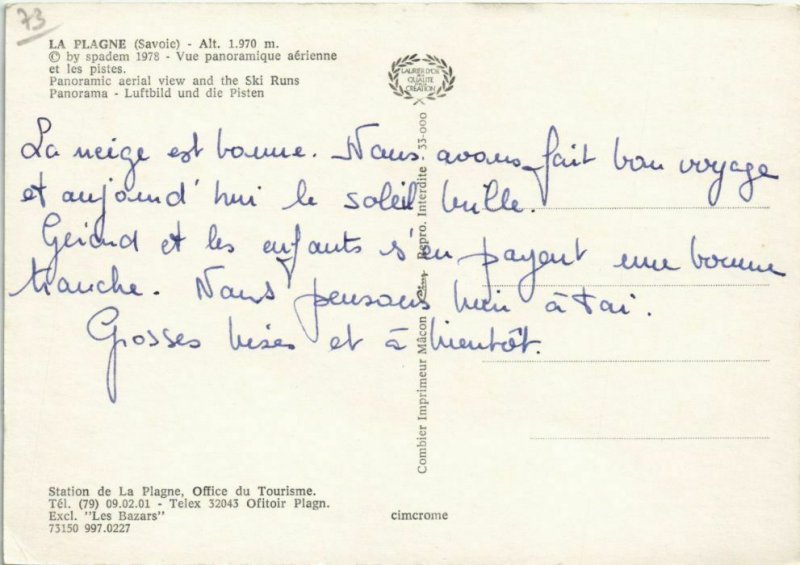 73
LA PLAGNE (Savoie) - Alt. 1.970 m.
© by spadem 1978 - Vue panoramique aérienne
et les pistes.
Panoramic aerial view and the Ski Runs
Panorama - Luftbild und die Pisten
LAURIER D'OR
DE LA
QUALITÉ
CRÉATION
La neige est bonne. Nous avons fait bon voyage
et aujourd'hui le soleil brille.
Gérard et les enfants s'en payent une bonne
tranche. Nous pensons bien à toi.
Grosses bises et à bientôt.
Combier Imprimeur Mâcon Cim Repro. Interdite - 33-000
Station de La Plagne, Office du Tourisme.
Tél. (79) 09.02.01 - Telex 32043 Ofitoir Plagn.
Excl. "Les Bazars"
73150 997.0227
cimcrome